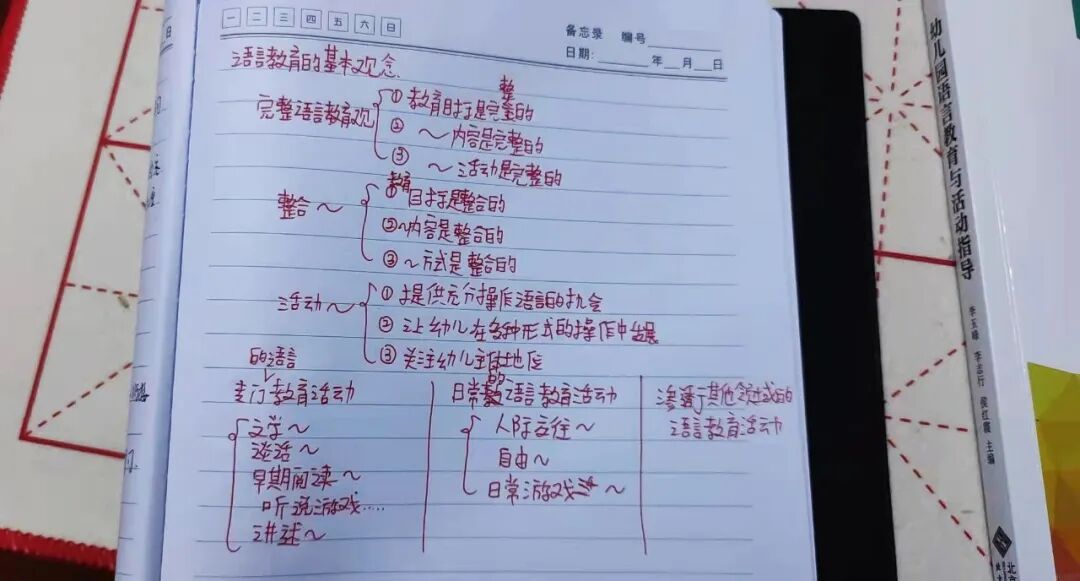 一 二 三 四 五 六 日
备忘录 编号
日期: 年 月 日
语言教育的基本观念
完整语言教育观
整
① 教育目标是完整的
② ～内容是完整的
③ ～活动是完整的
整合～
教育
① 目标是整合的
②～内容是整合的
③～方式是整合的
活动～
① 提供充分操作语言的机会
② 让幼儿在多种形式的操作中发展
③ 关注幼儿主体地位
的语言
专门教育活动
文学～
谈话～
早期阅读～
听说游戏……
讲述～
的
日常语言教育活动
人际交往～
自由～
日常游戏～
渗透于其他领域的
语言教育活动
幼儿园语言教育与活动指导
李玉峰 李志行 侯红霞 主编
北
日